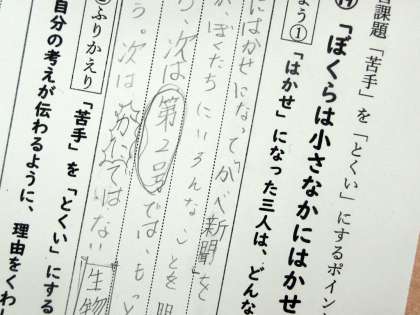 習課題 「苦手」を「とくい」にするポイン
⑲ 「ぼくらは小さなかにはかせ
よう① 「はかせ」になった三人は、どんな
にはかせになって「かべ新聞」を
が、ぼくたちにいろんなことを
ら、次は第2号では、もっと
う。次はかにではない生物
ふりかえり 「苦手」を「とくい」にする
自分の考えが伝わるように、理由をくわし